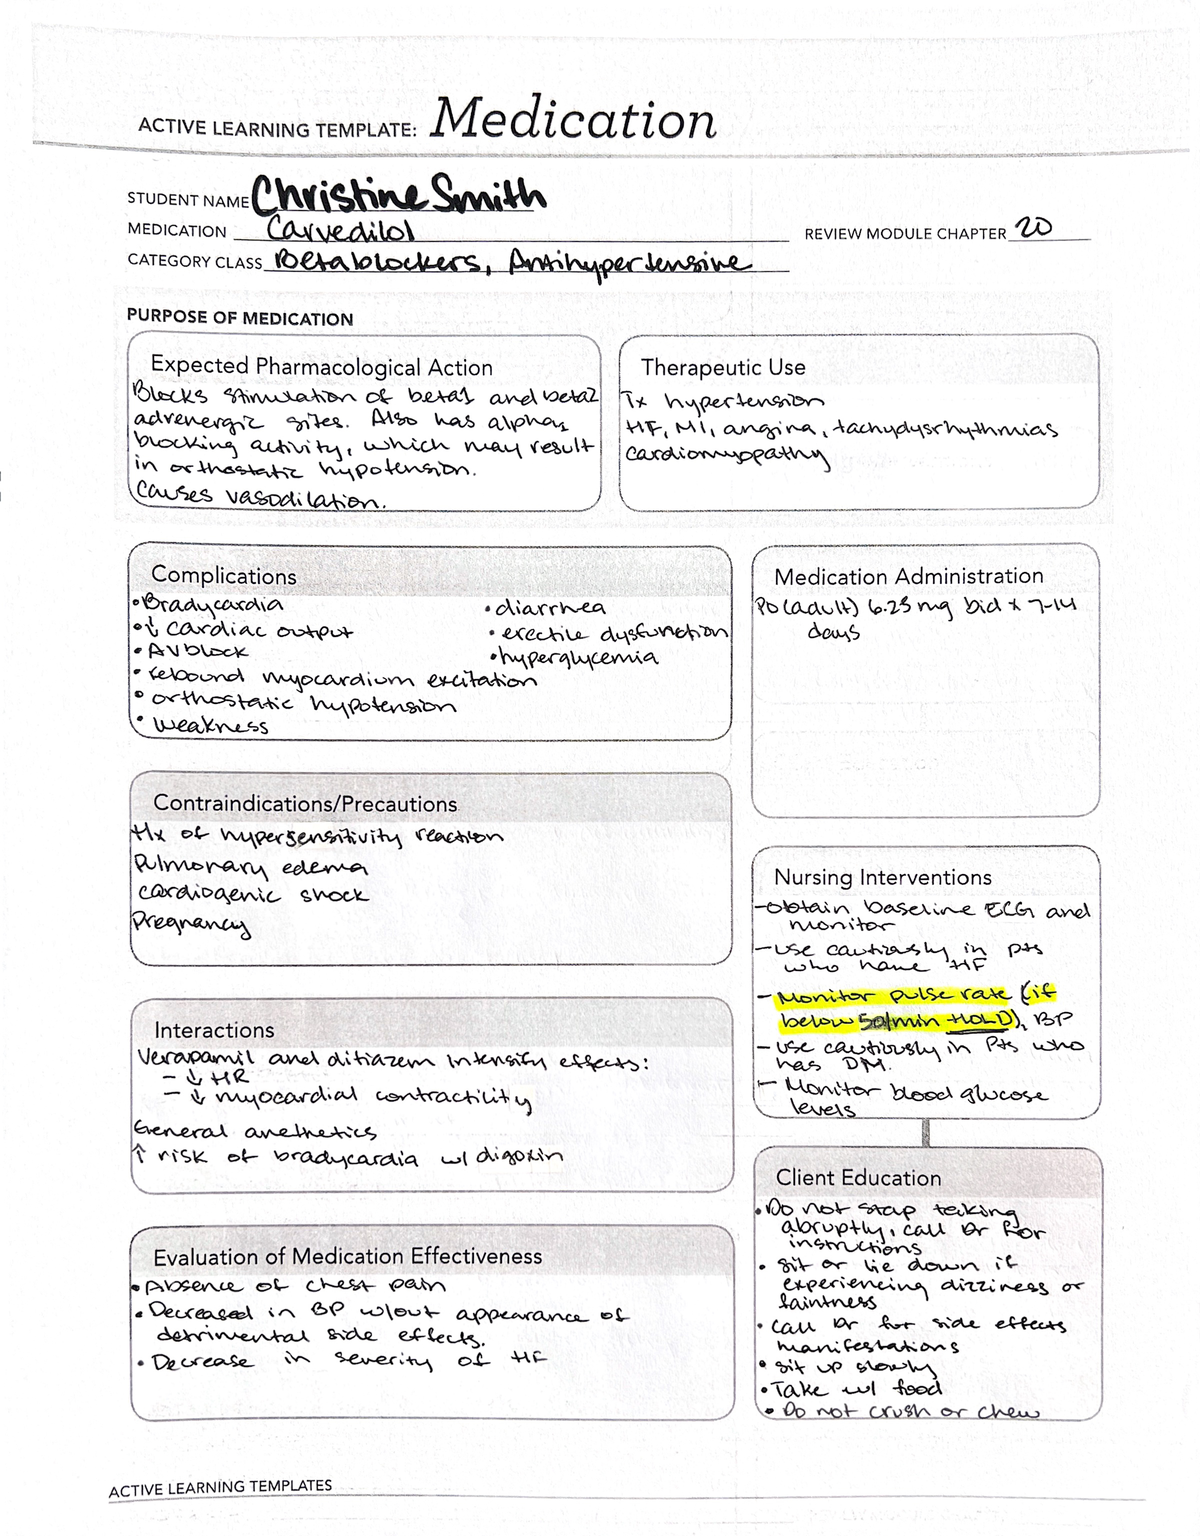 ACTIVE LEARNING TEMPLATE: Medication
STUDENT NAME Christine Smith
MEDICATION Carvedilol
REVIEW MODULE CHAPTER 20
CATEGORY CLASS Betablockers, Antihypertensive
PURPOSE OF MEDICATION
Expected Pharmacological Action
Blocks stimulation of beta1 and beta2
adrenergic sites. Also has alpha1
blocking activity, which may result
in orthostatic hypotension.
Causes vasodilation.
Therapeutic Use
Tx hypertension
HF, MI, angina, tachydysrhythmias
cardiomyopathy
Complications
•Bradycardia
•↓ cardiac output
•AV block
•rebound myocardium excitation
•orthostatic hypotension
•weakness
•diarrhea
•erectile dysfunction
•hyperglycemia
Medication Administration
PO (adult) 6.25 mg bid x 7-14
days
Contraindications/Precautions
Hx of hypersensitivity reaction
Pulmonary edema
cardiogenic shock
Pregnancy
Nursing Interventions
-obtain baseline ECG and
monitor
-use cautiously in pts
who have HF
-Monitor pulse rate (if
below 50/min HOLD), BP
-use cautiously in Pts who
has DM.
-Monitor blood glucose
levels
Interactions
Verapamil and ditiazem intensify effects:
- ↓ HR
- ↓ myocardial contractility
General anethetics
↑ risk of bradycardia w/ digoxin
Client Education
•Do not stop taking
abruptly, call Dr for
instructions
•sit or lie down if
experiencing dizziness or
faintness
•call Dr for side effects
manifestations
•sit up slowly
•Take w/ food
•Do not crush or chew
Evaluation of Medication Effectiveness
•Absence of chest pain
•Decreased in BP w/out appearance of
detrimental side effects.
•Decrease in severity of HF
ACTIVE LEARNING TEMPLATES